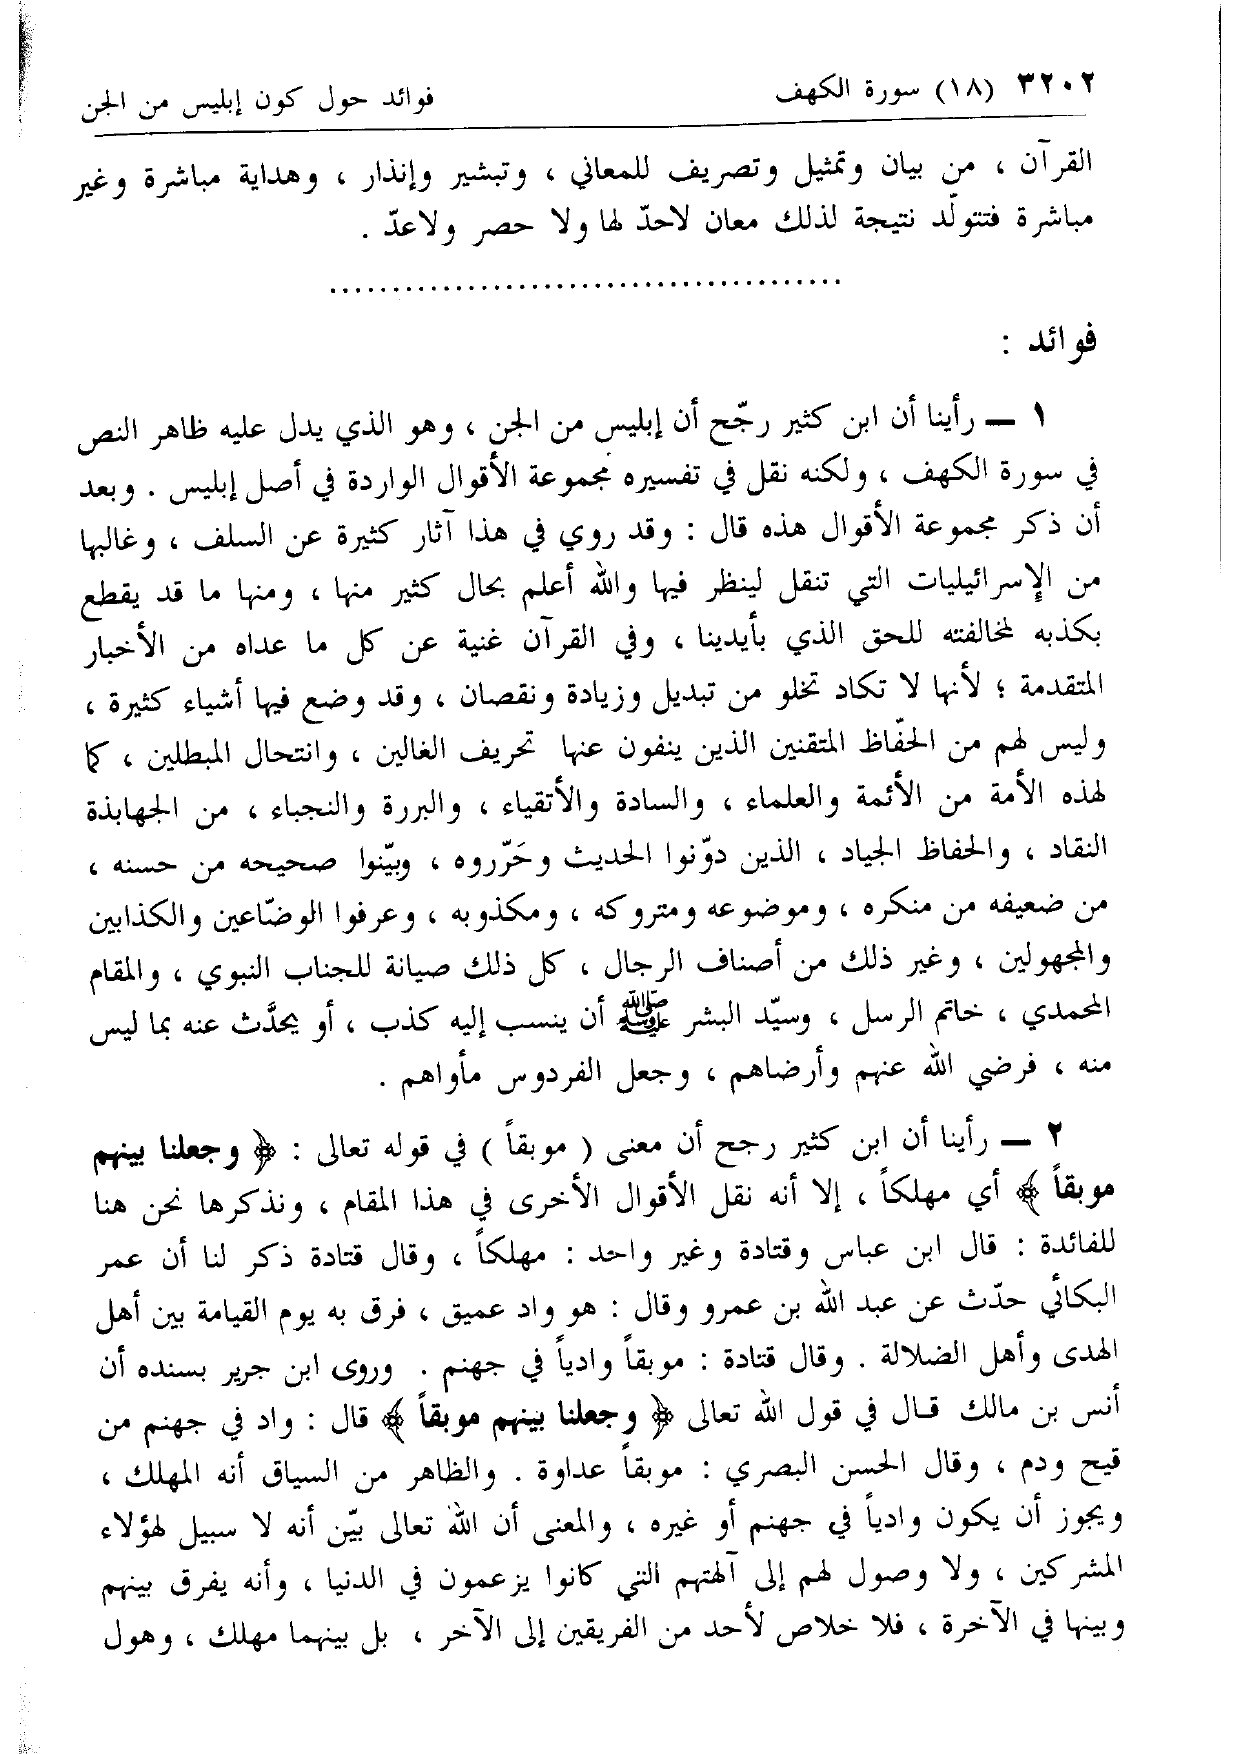 ٣٢٠٢ (١٨) سورة الكهف فوائد حول كون إبليس من الجن
القرآن ، من بيان وتمثيل وتصريف للمعاني ، وتبشير وإنذار ، وهداية مباشرة وغير
مباشرة فتتولّد نتيجة لذلك معان لاحدّ لها ولا حصر ولاعدّ .
........................................
فوائد :
١ ـ رأينا أن ابن كثير رجّح أن إبليس من الجن ، وهو الذي يدل عليه ظاهر النص
في سورة الكهف ، ولكنه نقل في تفسيره مجموعة الأقوال الواردة في أصل إبليس . وبعد
أن ذكر مجموعة الأقوال هذه قال : وقد روي في هذا آثار كثيرة عن السلف ، وغالبها
من الإسرائيليات التي تنقل لينظر فيها والله أعلم بحال كثير منها ، ومنها ما قد يقطع
بكذبه لمخالفته للحق الذي بأيدينا ، وفي القرآن غنية عن كل ما عداه من الأخبار
المتقدمة ؛ لأنها لا تكاد تخلو من تبديل وزيادة ونقصان ، وقد وضع فيها أشياء كثيرة ،
وليس لهم من الحفّاظ المتقنين الذين ينفون عنها تحريف الغالين ، وانتحال المبطلين ، كما
لهذه الأمة من الأئمة والعلماء ، والسادة والأتقياء ، والبررة والنجباء ، من الجهابذة
النقاد ، والحفاظ الجياد ، الذين دوّنوا الحديث وحَرّروه ، وبيّنوا صحيحه من حسنه ،
من ضعيفه من منكره ، وموضوعه ومتروكه ، ومكذوبه ، وعرفوا الوضّاعين والكذابين
والمجهولين ، وغير ذلك من أصناف الرجال ، كل ذلك صيانة للجناب النبوي ، والمقام
المحمدي ، خاتم الرسل ، وسيّد البشر ﷺ أن ينسب إليه كذب ، أو يحدَّث عنه بما ليس
منه ، فرضي الله عنهم وأرضاهم ، وجعل الفردوس مأواهم .
٢ ـ رأينا أن ابن كثير رجح أن معنى ( موبقاً ) في قوله تعالى : ﴿ وجعلنا بينهم
موبقاً ﴾ أي مهلكاً ، إلا أنه نقل الأقوال الأخرى في هذا المقام ، ونذكرها نحن هنا
للفائدة : قال ابن عباس وقتادة وغير واحد : مهلكاً ، وقال قتادة ذكر لنا أن عمر
البكائي حدّث عن عبد الله بن عمرو وقال : هو واد عميق ، فرق به يوم القيامة بين أهل
الهدى وأهل الضلالة . وقال قتادة : موبقاً وادياً في جهنم . وروى ابن جرير بسنده أن
أنس بن مالك قال في قول الله تعالى ﴿ وجعلنا بينهم موبقاً ﴾ قال : واد في جهنم من
قيح ودم ، وقال الحسن البصري : موبقاً عداوة . والظاهر من السياق أنه المهلك ،
ويجوز أن يكون وادياً في جهنم أو غيره ، والمعنى أن الله تعالى بيّن أنه لا سبيل لهؤلاء
المشركين ، ولا وصول لهم إلى آلهتهم التي كانوا يزعمون في الدنيا ، وأنه يفرق بينهم
وبينها في الآخرة ، فلا خلاص لأحد من الفريقين إلى الآخر ، بل بينهما مهلك ، وهول